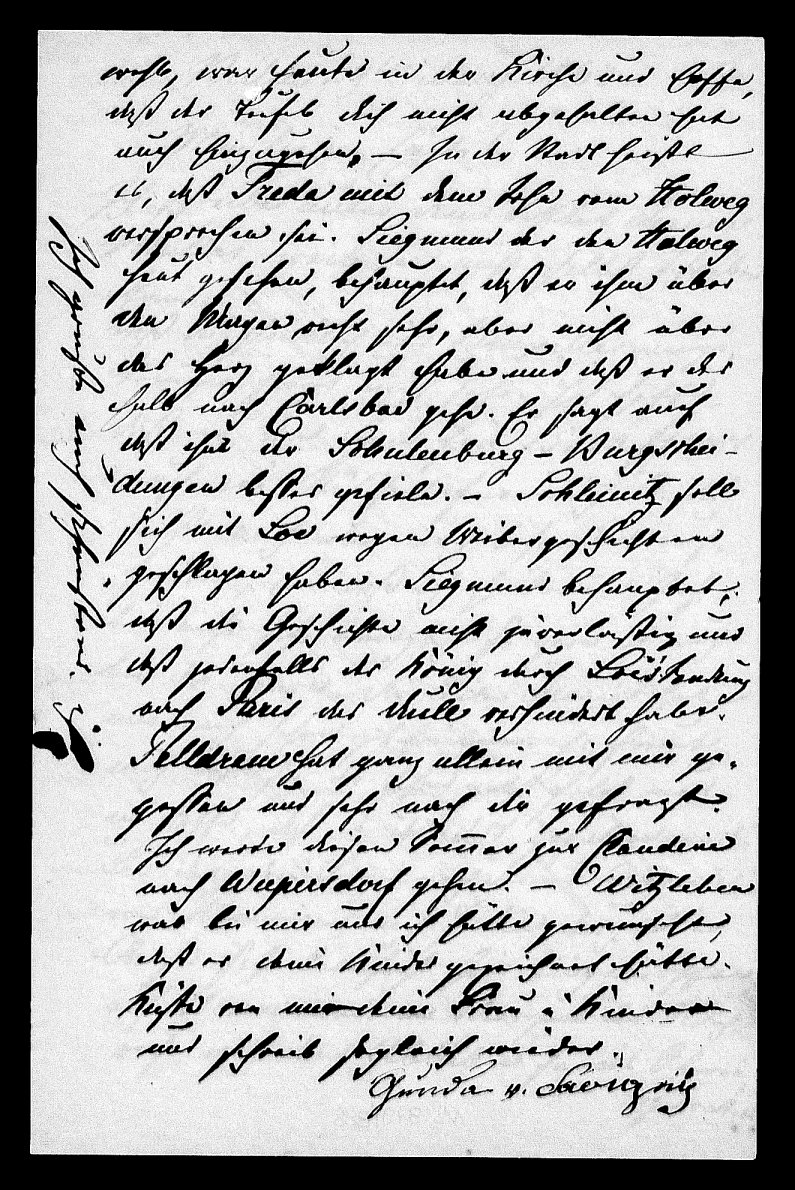 wohl, war heute in der Kirche und hoffe,
daß der Teufel dich nicht abgehalten hat
auch hinzugehen, – In der Stadt heißt
es, daß Freda mit dem Sohn vom Holweg
versprochen sei. Siegmund der den Holweg
heut gesehen, behauptet, daß er ihm über
den Magen recht sehr, aber nicht über
das Herz geklagt habe und daß er des
halb nach Carlsbad gehe. Er sagt auch
daß ihm der Schulenburg – Burgschei-
dungen besser gefiele. – Schleinitz soll
sich mit Loe wegen Weibergeschichten
geschlagen haben. Siegmund behauptet,
daß die Geschichte nicht zuverlässig und
daß jedenfalls der König durch Loe's Sendung
nach Paris das Duell verhindert habe.
hat ganz allein mit mir ge-
gessen und sehr nach dir gefragt.
Ich werde diesen Sommer zur Claudine
nach Wiepersdorf gehen. – Witzleben
war bei mir und ich hätte gewünscht,
daß er deine Kinder gezeichnet hätte.
Küsse von mir deine Frau u Kinder
und schreib sogleich wieder.
Gunda v. Savigny
Ich